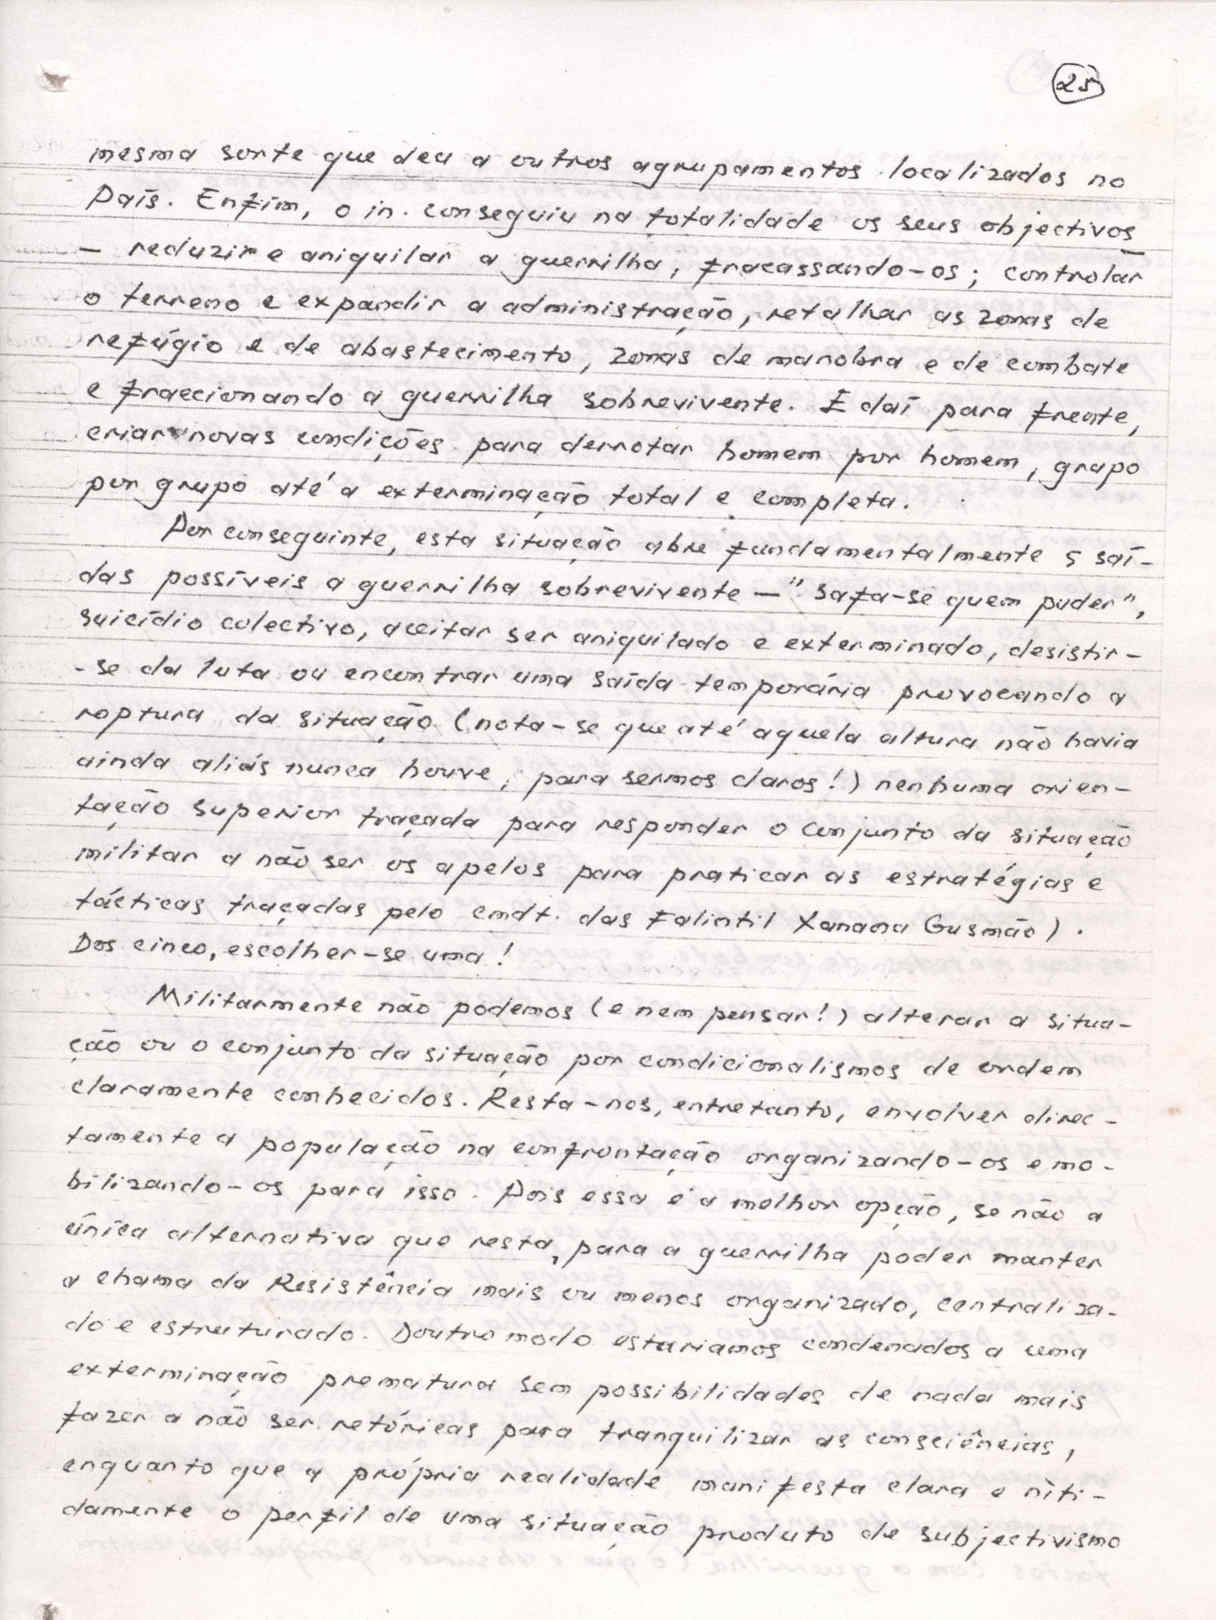 25
mesma sorte que deu a outros agrupamentos localizados no
País. Enfim, o in. conseguiu na totalidade os seus objectivos
— reduzir e aniquilar a guerrilha, fracassando-os; controlar
o terreno e expandir a administração, retalhar as zonas de
refúgio e de abastecimento, zonas de manobra e de combate
e fraccionando a guerrilha sobrevivente. E daí para frente,
criar novas condições para derrotar homem por homem, grupo
por grupo até a exterminação total e completa.
Por conseguinte, esta situação abre fundamentalmente 5 saí-
das possíveis a guerrilha sobrevivente — "safa-se quem puder",
suicídio colectivo, aceitar ser aniquilado e exterminado, desistir-
-se da luta ou encontrar uma saída temporária provocando a
roptura da situação (nota-se que até aquela altura não havia
ainda aliás nunca houve, para sermos claros!) nenhuma orien-
tação superior traçada para responder o conjunto da situação
militar a não ser os apelos para praticar as estratégias e
tácticas traçadas pelo cmdt. das Falintil Xanana Gusmão).
Dos cinco, escolher-se uma!
Militarmente não podemos (e nem pensar!) alterar a situa-
ção ou o conjunto da situação por condicionalismos de ordem
claramente conhecidos. Resta-nos, entretanto, envolver direc-
tamente a população na confrontação organizando-os e mo-
bilizando-os para isso. Pois essa é a melhor opção, se não a
única alternativa que resta, para a guerrilha poder manter
a chama da Resistência mais ou menos organizado, centraliza-
do e estruturado. Doutro modo estariamos condenados a uma
exterminação prematura sem possibilidades de nada mais
fazer a não ser retóricas para tranquilizar as consciências,
enquanto que a própria realidade manifesta clara e níti-
damente o perfil de uma situação produto de subjectivismo